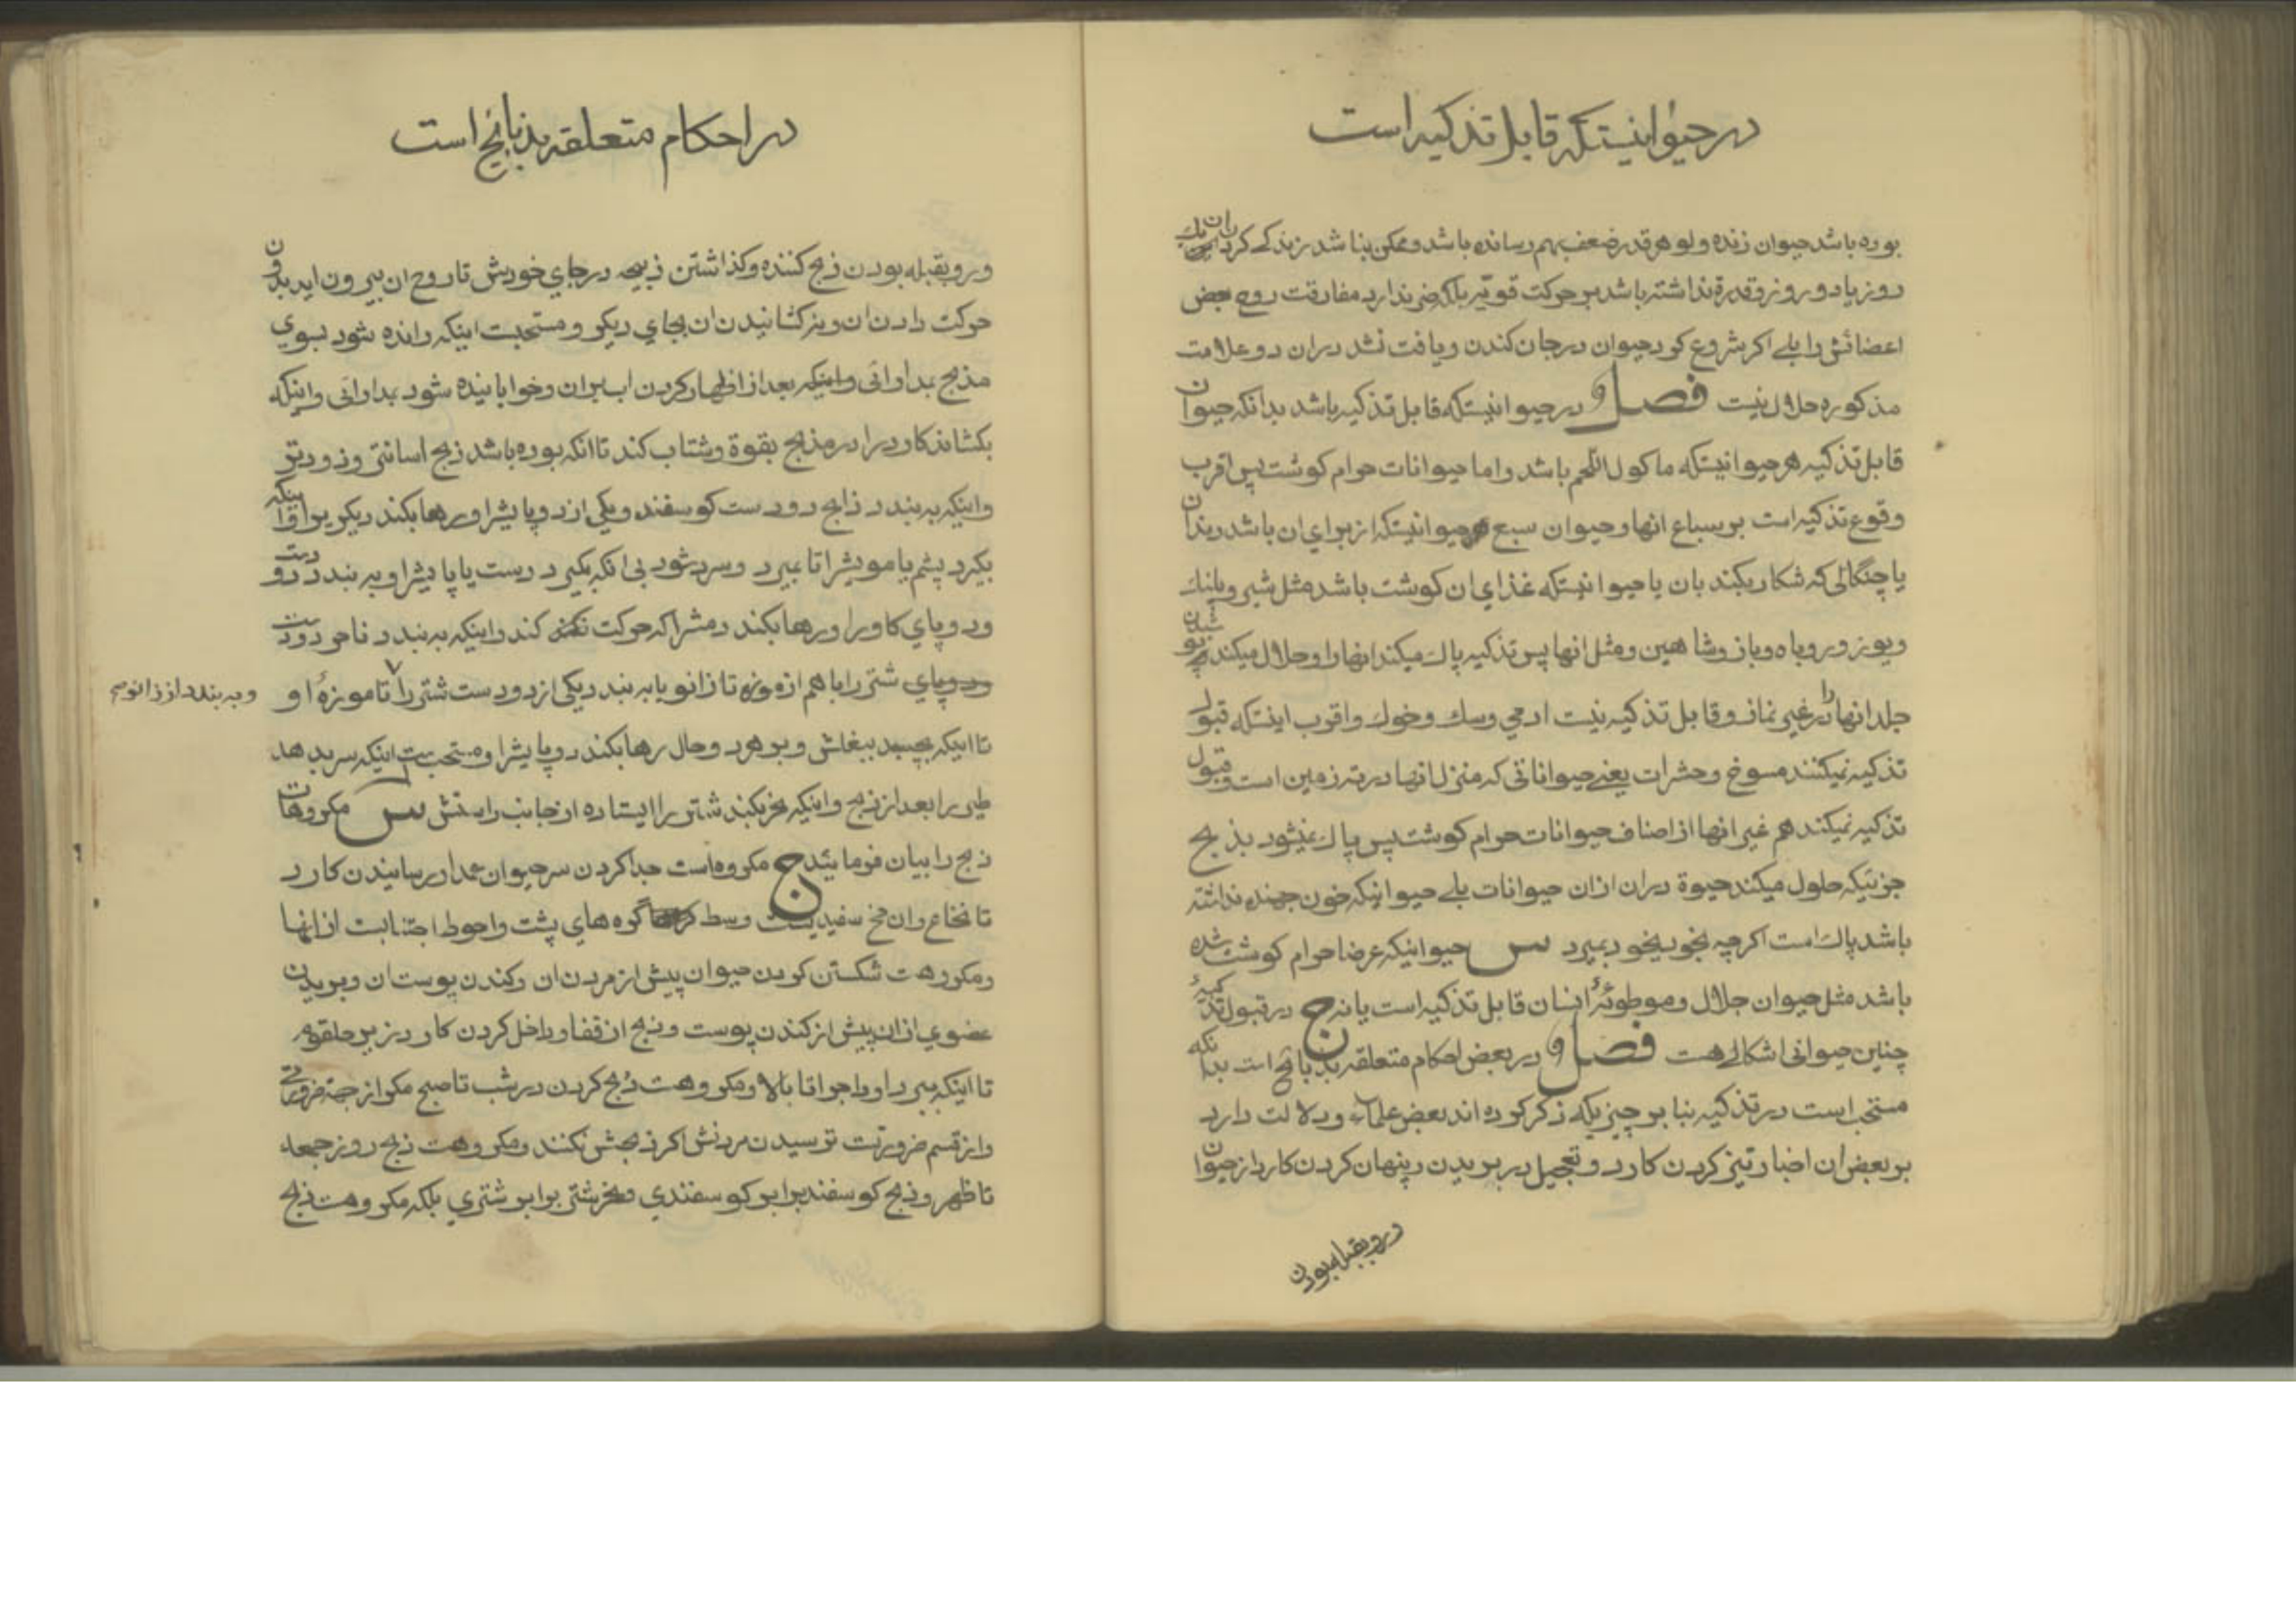 در حیوانیستکه قابل تذکیه است
بوده باشد حیوان زنده ولو هر قدر ضعف بهم رسانده باشد و ممکن بناشد زندکے کردن ان یك
روز یا دو روز و قدرة نداشته باشد بر حرکت قویّه بلکه ضرر ندارد مفارقت روح بعض
اعضائش را بلے اکر شروع کرد حیوان در جان کندن و یافت نشد در ان دو علامت
مذکوره حلال نیست فصل و در حیوانیستکه قابل تذکیه باشد بدانکه حیوان
قابل تذکیه هر حیوانیستکه ماکول اللّحم باشد و اما حیوانات حرام کوشت پس اقرب
وقوع تذکیه است بر سباع انها و حیوان سبع هر حیوانیستکه از برای ان باشد دندان
یا چنگالی که شکار بکند بان یا حیوانیستکه غذای ان کوشت باشد مثل شیر و پلنك
و یوز و روباه و باز و شاهین و مثل انها پس تذکیه پاك میکند انها را و حلال میکند پوشیدن
جلد انها را در غیر نماز و قابل تذکیه نیست ادمی و سك و خوك و اقرب اینستکه قبول
تذکیه نمیکنند مسوخ و حشرات یعنے حیواناتی که منزل انها در ته زمین است و قبول
تذکیه نمیکند هم غیر انها از اصناف حیوانات حرام کوشت پس پاك نمیشود بذبح
جزئیکه حلول میکند حیوة در ان از ان حیوانات بلے حیوانیکه خون جهنده نداشته
باشد پاك است اکرچه بخودیخود بمیرد س حیوانیکه عرضا حرام کوشت شده
باشد مثل حیوان جلال و موطوئهٔ انسان قابل تذکیه است یا نه ج در قبول تذکیهٔ
چناین حیوانی اشکالے هست فصل و در بعض احکام متعلقه بذبائح است بدانکه
مستحب است در تذکیه بنا بر چیزیکه ذکر کرده اند بعض علماء و دلالت دارد
بر بعض ان اخبار تیز کردن کارد و تعجیل در بریدن و پنهان کردن کارد از حیوان
و رو بقبله بودن
در احکام متعلقه بذبائح است
و رو بقبله بودن ذبح کننده و کذاشتن ذبیحه در جای خودش تا روح ان بیرون اید بدون
حرکت دادن ان و بر کشانیدن ان بجای دیکر و مستحبست اینکه رانده شود بسوی
مذبح بمدارائی و اینکه بعد از اظهار کردن اب بران و خوابانیده شود بمدارائی و اینکه
بکشاند کارد را در مذبح بقوة و شتاب کند تا انکه بوده باشد ذبح اسانتر و زودتر
و اینکه به بندد ذابح دو دست کوسفند و یکی از دو پایشرا و رها بکند دیکریرا و اینکه
بکیرد پشم یا مویشرا تا بمیرد و سرد شود بی انکه بکیرد دست یا پایشرا و به بندد دو دست
و دو پای کاو را و رها بکند دمشرا که حرکت کند و اینکه به بندد ناحر دو دست
و دو پای شتر را با هم از موزه تا زانو یا به بندد یکی از دو دست شتر را تا موزهٔ او
و به بندد از زانو صح
تا اینکه بچسبد ببغلش و بر هر دو حال رها بکند دو پایشرا و مستحب است اینکه سر بدهد
طیر را بعد از ذبح و اینکه نحر بکند شتر را ایستاده از جانب راستش س مکروهات
ذبح را بیان فرمایئد ج مکروه است جدا کردن سر حیوان عمدا و رسانیدن کارد
تا نخاع و ان مخ سفیدیست وسط گره های پشت و احوط اجتنابست از انها
و مکروهست شکستن کردن حیوان پیش از مردن ان و کندن پوست ان و بریدن
عضوی از ان پیش از کندن پوست و ذبح از قفا و داخل کردن کارد زیر حلقوم
تا اینکه ببرد او داجرا تا بالا و مکروهست ذبح کردن در شب تا صبح مکر از جهة ضرورتی
و از قسم ضرورتست ترسیدن مردنش اکر ذبحش نکنند و مکروهست ذبح روز جمعه
تا ظهر و ذبح کوسفند برابر کوسفندی و نحر شتر برابر شتری بلکه مکروهست ذبح